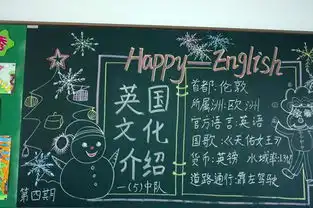 Happy English
英国
文化
介绍
一(5)中队
第四期
首都:伦敦
所属洲:欧洲
官方语言:英语
国歌:《天佑女王》
货币:英镑 水域率:1.3%
道路通行:靠左驾驶